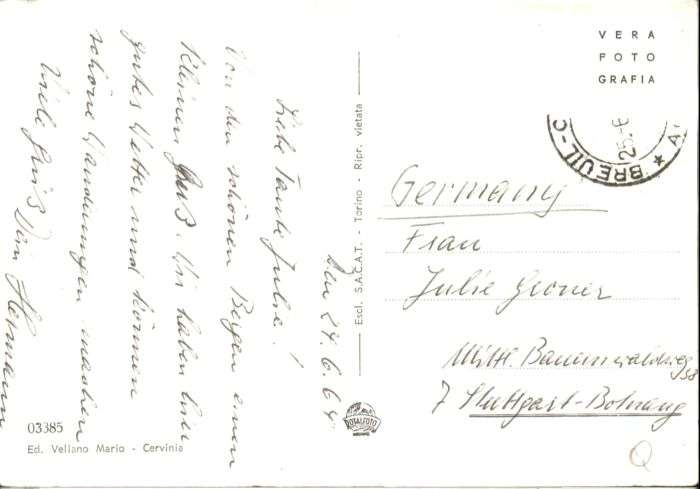 den 24.6.64
Liebe Tante Julie!
Von den schönen Bergen einen
kleinen Gruß. Wir haben hier
gutes Wetter und können
schöne Wanderungen machen
Viele Grüß Dein Hermann
03385
Ed. Vellano Mario - Cervinia
Escl. S.A.C.A.T. - Torino - Ripr. vietata
TOTALFOTO
VERA
FOTO
GRAFIA
BREUIL-C
25.-6
Germany
Frau
Julie
Mittl. 58
7 Stuttgart-Botnang
Q